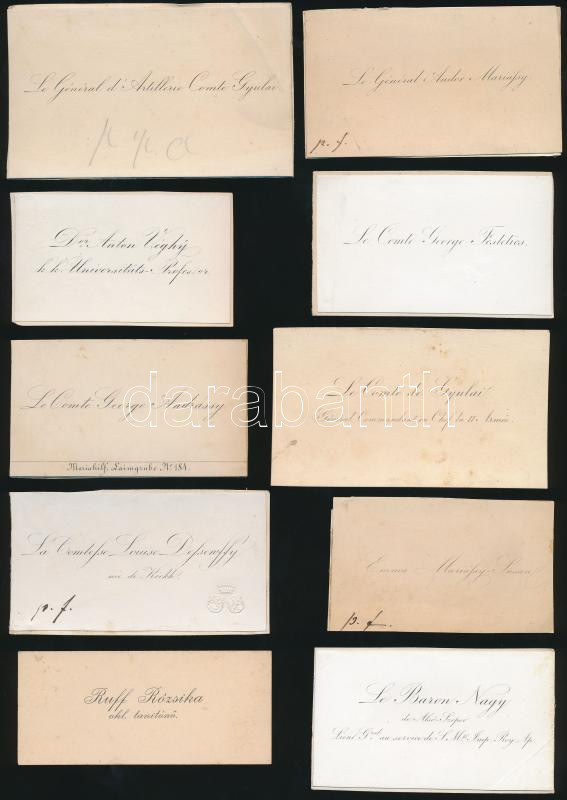 Le Général d'Artillerie Comte Gyulai
p. p. c.
Le Général Andor Mariassy
p. f.
Dor. Anton Véghÿ
k. k. Universitäts-Professor
Le Comte George Festetics.
Le Comte George Andrássy
Mariahilf, Laimgrube, No. 184.
Le Comte de Gyulai
Général Commandant en Chef la II Armée.
La Comtesse Louise Dessewffy
née de
p. f.
Emma Mariassy
p. f.
Ruff Rózsika
okl. tanitónő.
Le Baron Nagy
de Alsó-Szopor
Lieut. Gral au service de S. Mté Imp. Roy. Ap.
darabanth